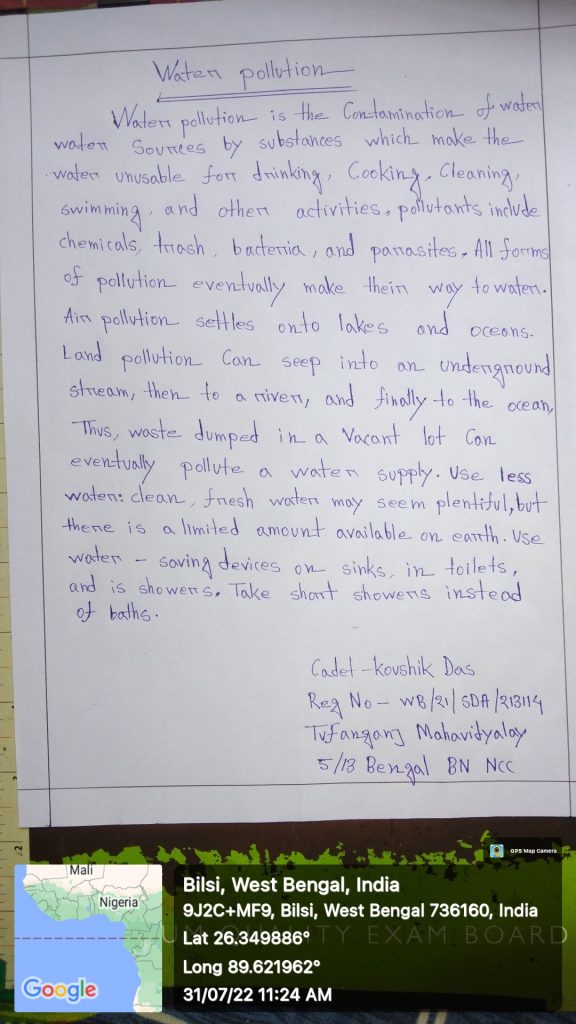 Water pollution
Water pollution is the Contamination of water
water Sources by substances which make the
water unusable for drinking, Cooking, Cleaning,
swimming, and other activities, pollutants include
chemicals, trash, bacteria, and parrasites. All forms
of pollution eventually make their way to water.
Air pollution settles onto lakes and oceans.
Land pollution Can seep into an underground
stream, then to a river, and finally to the ocean,
Thus, waste dumped in a Vacant lot Can
eventually pollute a water supply. Use less
water: clean, fresh water may seem plentiful, but
there is a limited amount available on earth. Use
water - saving devices on sinks, in toilets,
and is showers. Take short showers instead
of baths.
Cadet - Koushik Das
Reg No - WB/21/SDA/213114
Tufanganj Mahavidyalay
5/13 Bengal BN NCC
GPS Map Camera
Mali
Nigeria
Google
Bilsi, West Bengal, India
9J2C+MF9, Bilsi, West Bengal 736160, India
Lat 26.349886°
UM QUALITY EXAM BOARD
Long 89.621962°
31/07/22 11:24 AM